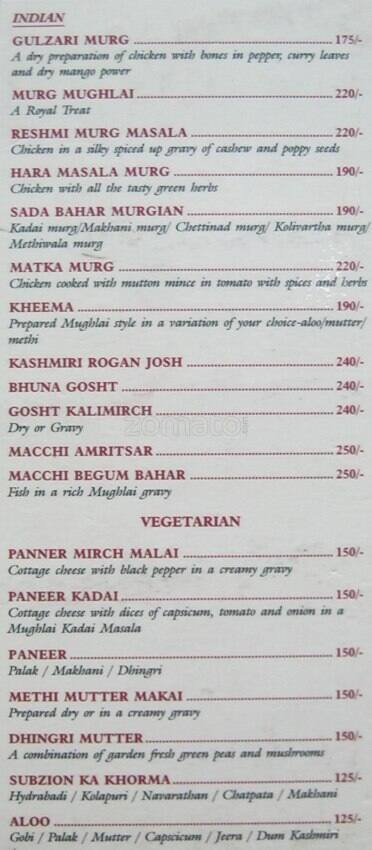 INDIAN
GULZARI MURG 175/-
A dry preparation of chicken with bones in pepper, curry leaves
and dry mango power
MURG MUGHLAI 220/-
A Royal Treat
RESHMI MURG MASALA 220/-
Chicken in a silky spiced up gravy of cashew and poppy seeds
HARA MASALA MURG 190/-
Chicken with all the tasty green herbs
SADA BAHAR MURGIAN 190/-
Kadai murg/Makhani murg/ Chettinad murg/ Kolivartha murg/
Methiwala murg
MATKA MURG 220/-
Chicken cooked with mutton mince in tomato with spices and herbs
KHEEMA 190/-
Prepared Mughlai style in a variation of your choice-aloo/mutter/
methi
KASHMIRI ROGAN JOSH 240/-
BHUNA GOSHT 240/-
GOSHT KALIMIRCH 240/-
Dry or Gravy
zomato
MACCHI AMRITSAR 250/-
MACCHI BEGUM BAHAR 250/-
Fish in a rich Mughlai gravy
VEGETARIAN
PANNER MIRCH MALAI 150/-
Cottage cheese with black pepper in a creamy gravy
PANEER KADAI 150/-
Cottage cheese with dices of capsicum, tomato and onion in a
Mughlai Kadai Masala
PANEER 150/-
Palak / Makhani / Dhingri
METHI MUTTER MAKAI 150/-
Prepared dry or in a creamy gravy
DHINGRI MUTTER 150/-
A combination of garden fresh green peas and mushrooms
SUBZION KA KHORMA 125/-
Hydrabadi / Kolapuri / Navarathan / Chatpata / Makhani
ALOO 125/-
Gobi / Palak / Mutter / Capscicum / Jeera / Dum Kashmiri